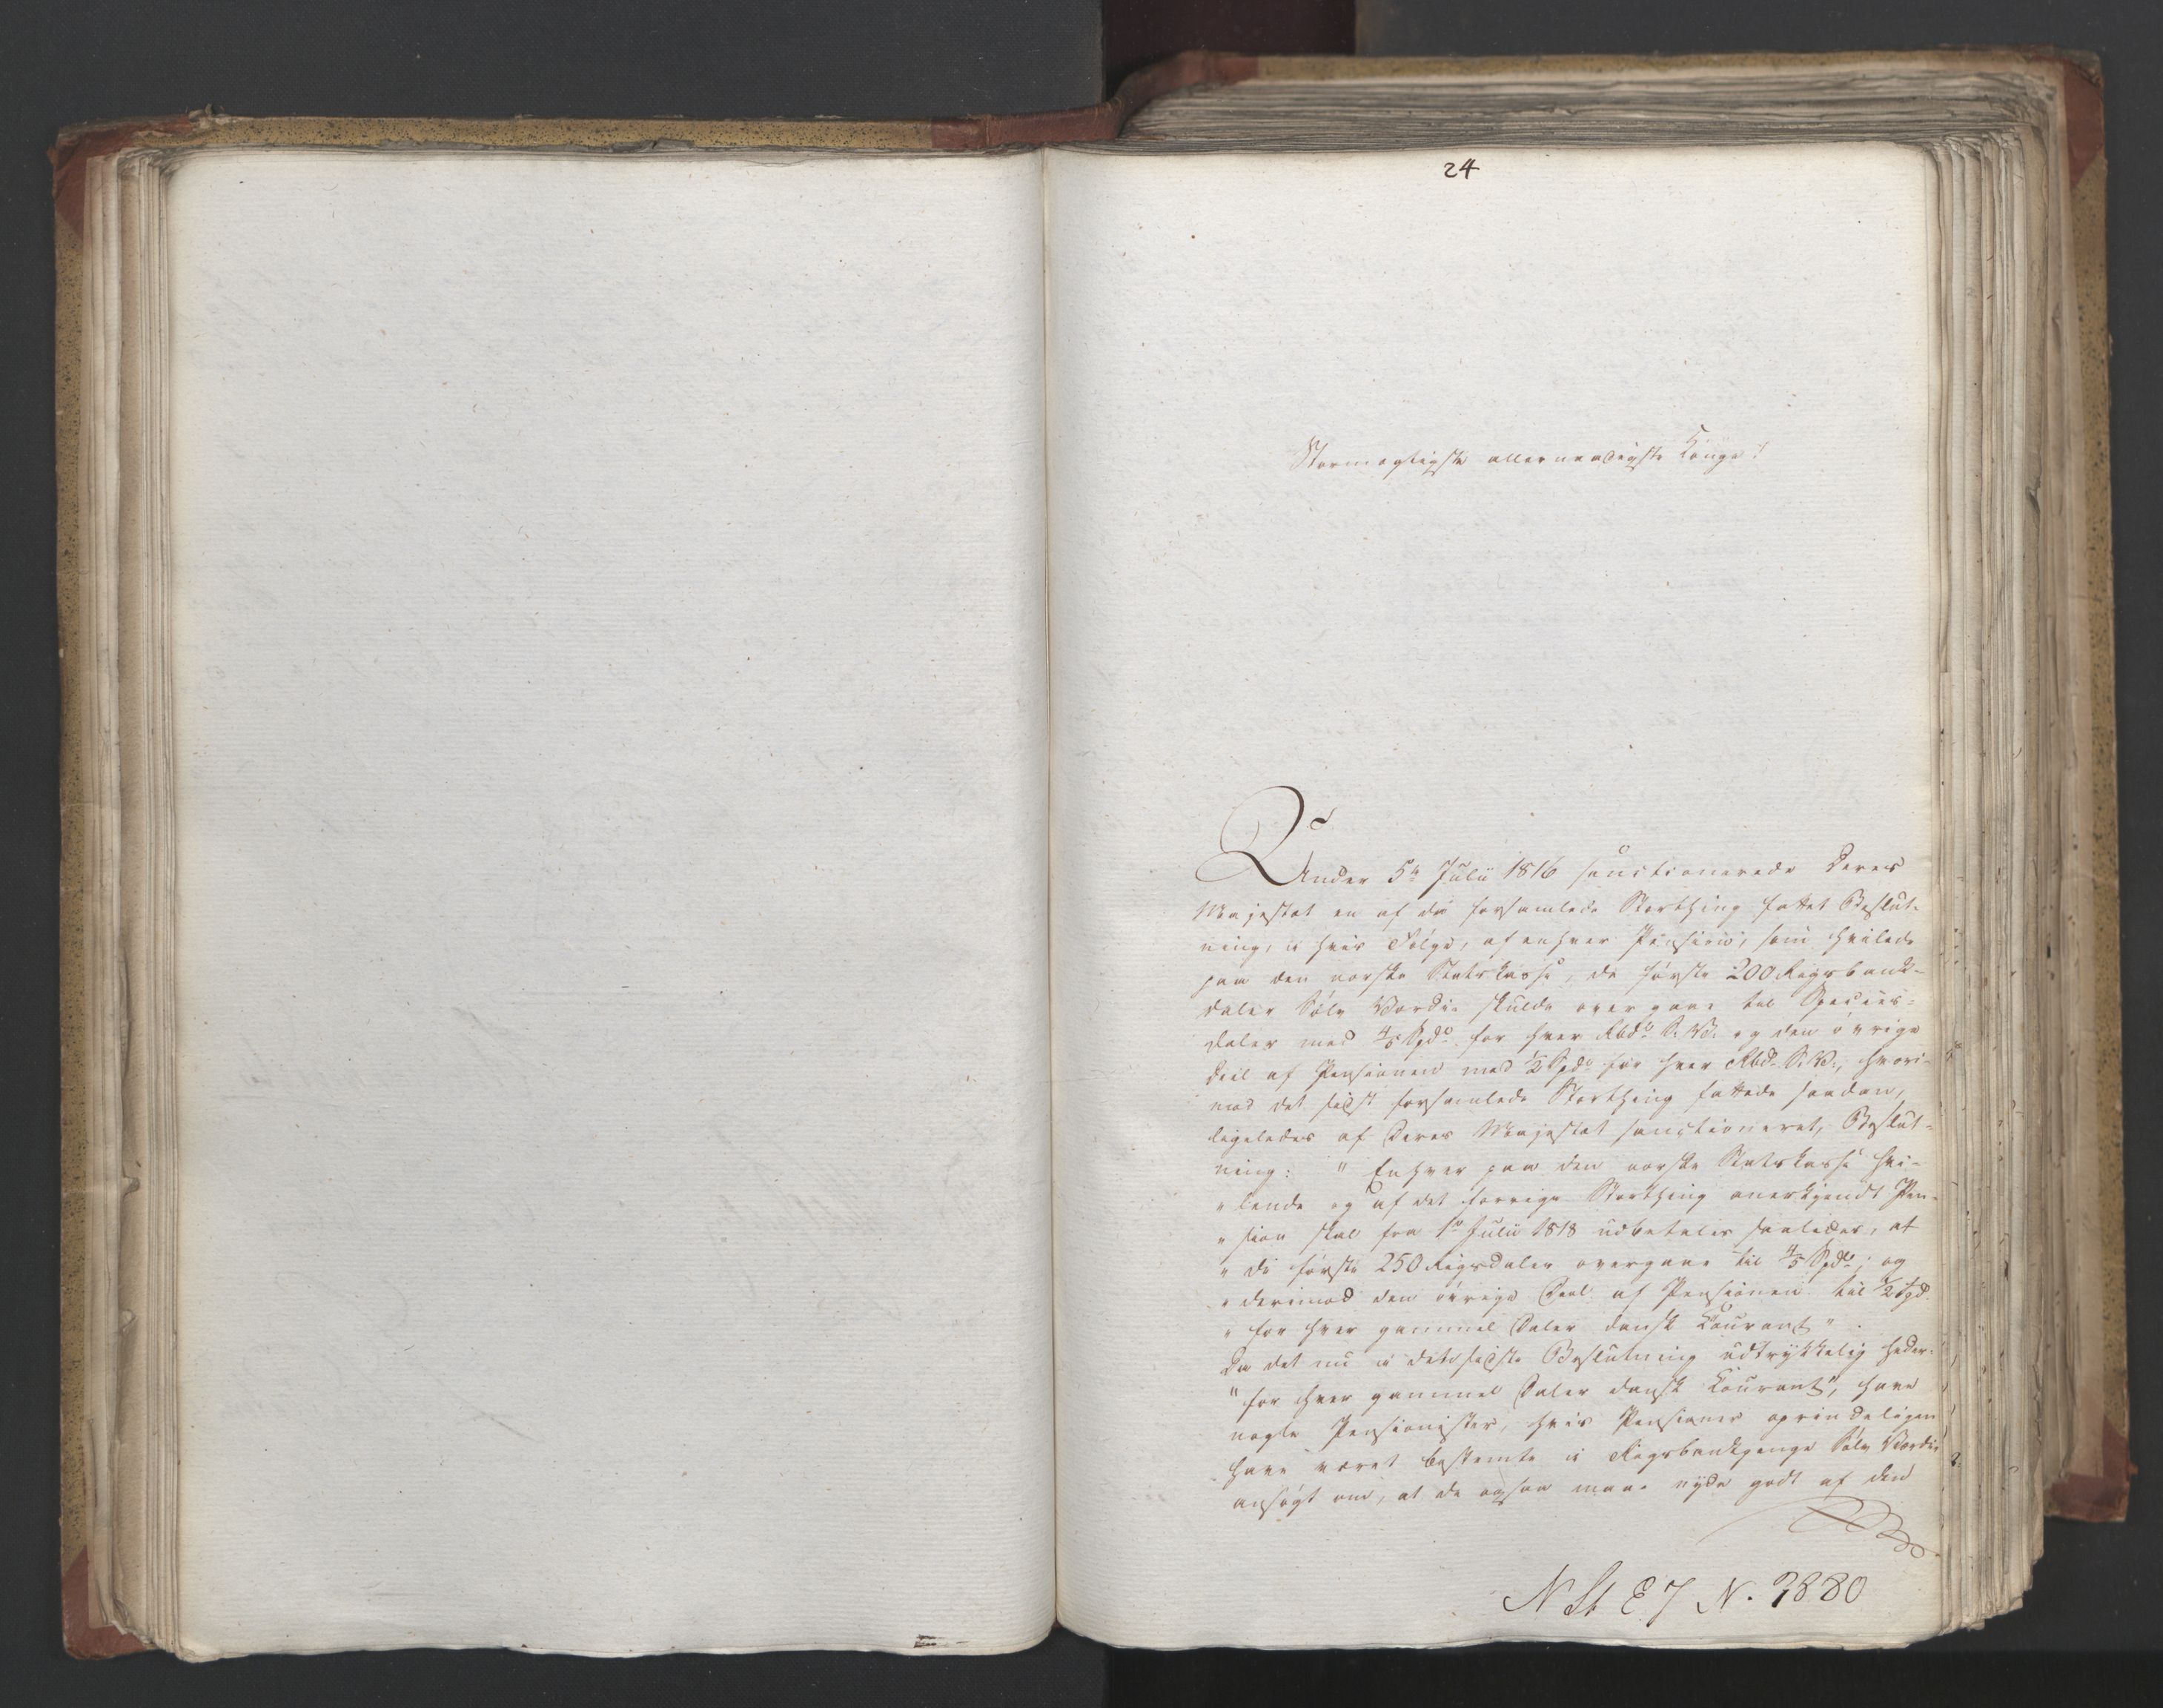 24
Stormægtigste allernaadigste Konge!
Under 5te Julii 1816 sanctionerede Deres
Majestæt en af da forsamlede Storthing fattet Beslut-
ning, i hvis Følge, af enhver Pension, som hvilede
paa den norske Statskasse, de første 200 Rigsbank-
daler Sølv Værdie skulde overgaae til Species-
daler med 4/5 Spdr for hver Rbdr S. V. og den øvrige
Deel af Pensionen med 1/2 Spdr for hver Rbdr S. V., hvori-
mod det sidst forsamlede Storthing fattede saadan,
ligeledes af Deres Majestæt sanctioneret, Beslut-
ning: "Enhver paa den norske Statskasse hvi-
"lende og af det forrige Storthing anerkjendt Pen-
"sion skal fra 1ste Julii 1818 udbetales saaledes, at
"de første 250 Rigsdaler overgaae til 4/5 Spdlr; og
"derimod den øvrige Deel af Pensionen til 1/2 Spd.
"for hver gammel Daler dansk Courant".
Da det nu i det sidste Beslutning udtrykkelig heder:
"for hver gammel Daler dansk Courant", have
nogle Pensionister, hvis Pensioner oprindeligen
have været bestemte i Rigsbankpenge Sølv Værdie
ansøgt om, at de ogsaa maae nyde godt af den
N St E 7 N. 3880